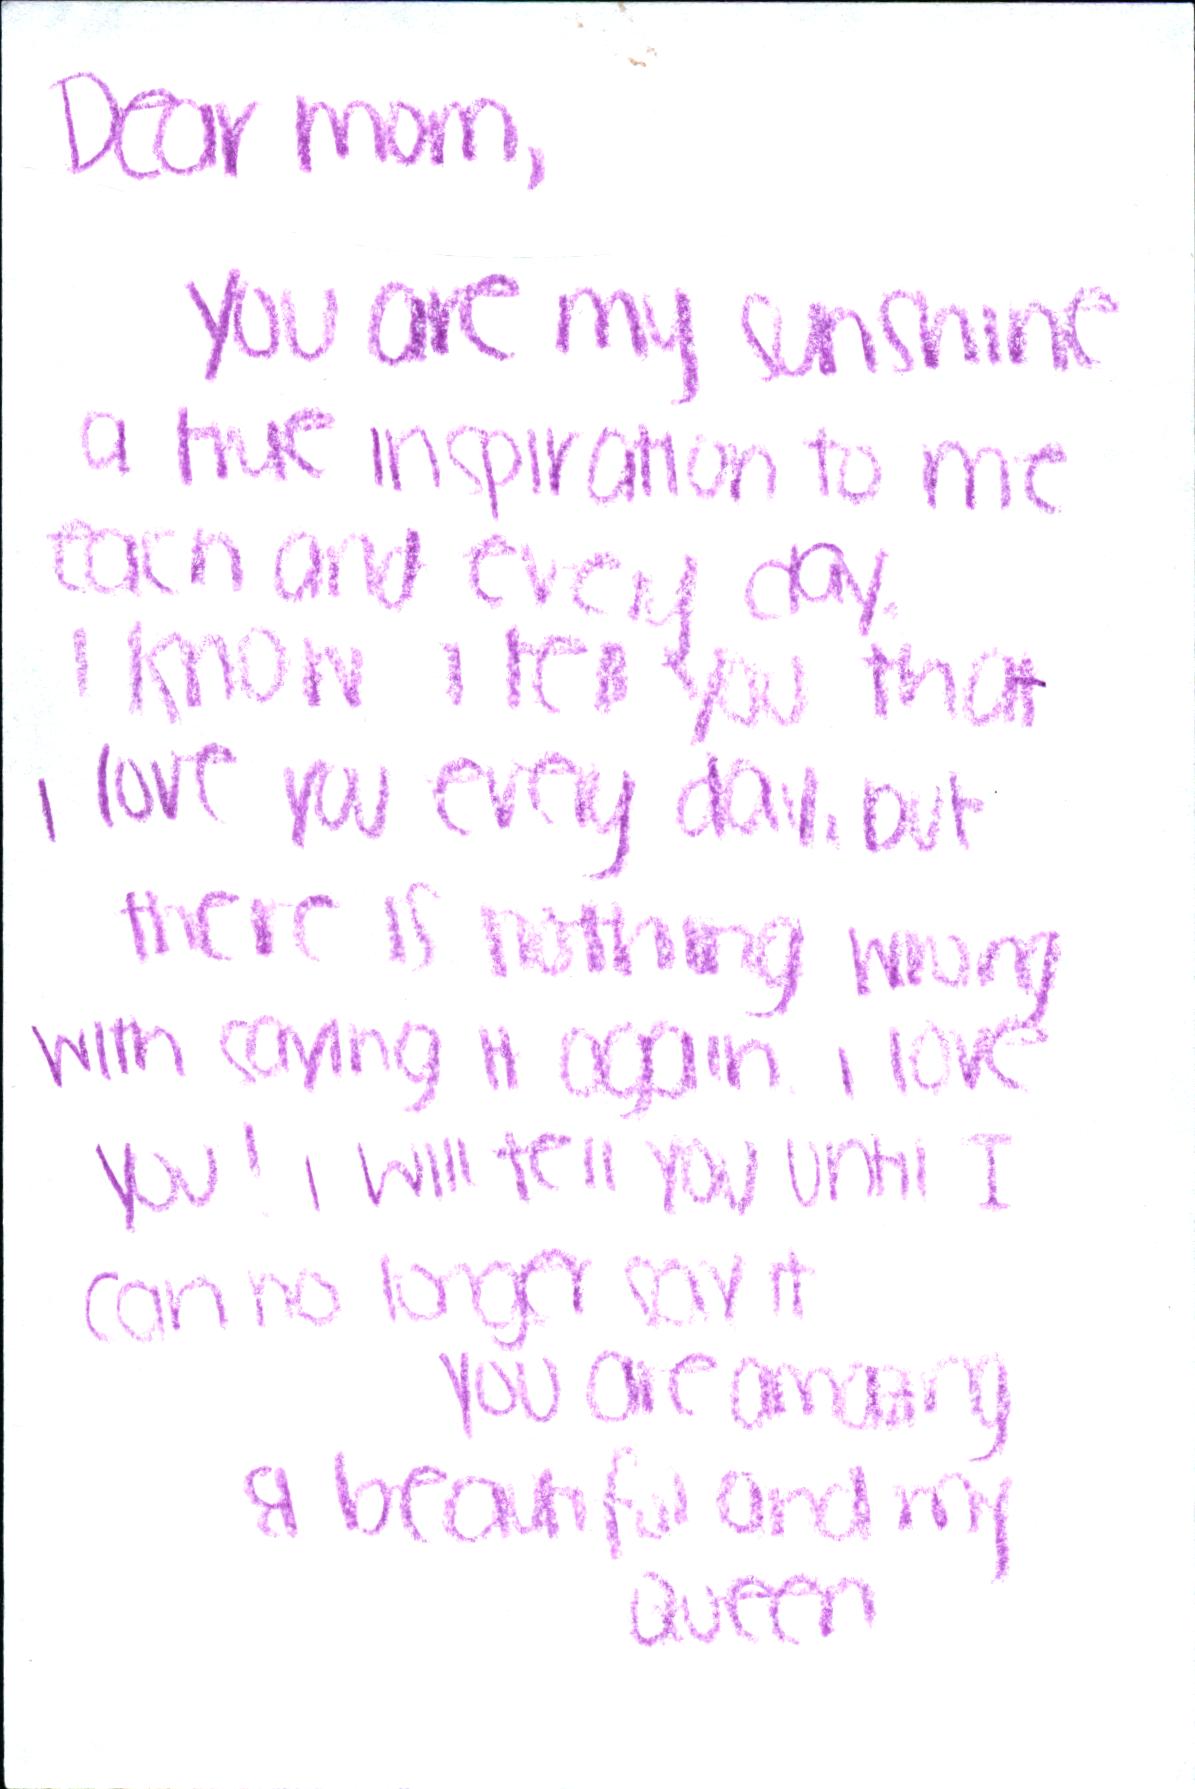 Dear mom,
you are my sunshine
a true inspiration to me
each and every day.
I know I tell you that
I love you every day. but
there is nothing wrong
with saying it again. I love
you! I will tell you until I
can no longer say it
you are amazing
a beautiful and my
Queen